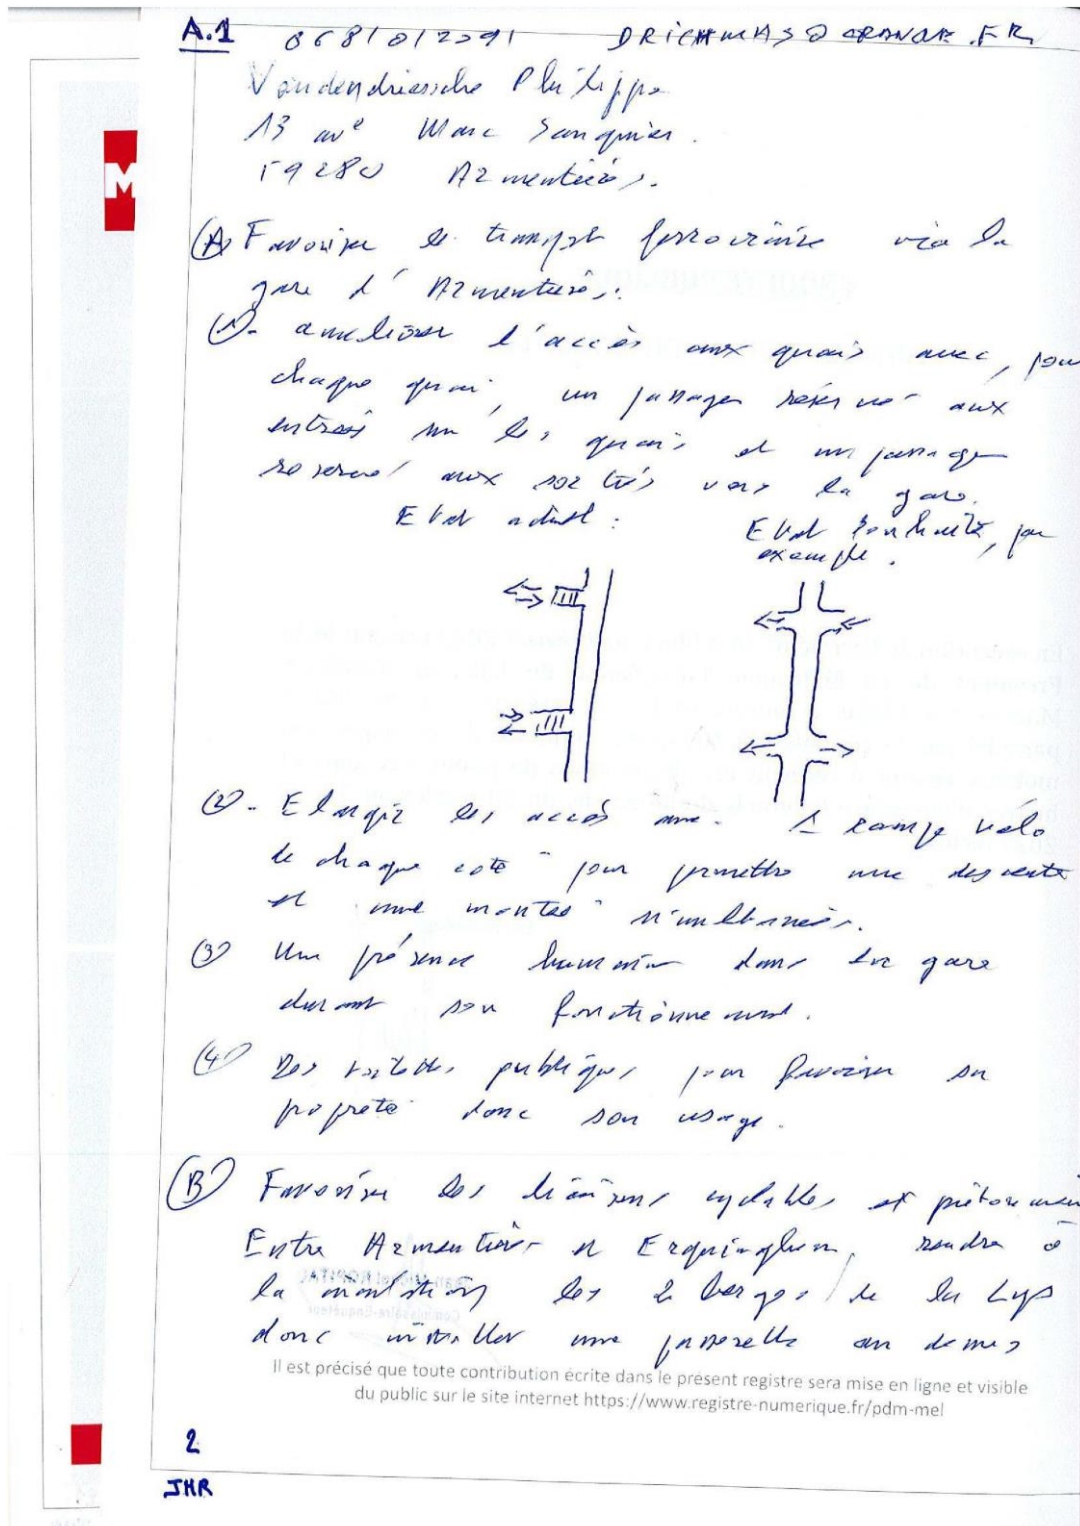 A.1 0681012591 DRICHMAS@ORANGE.FR
Vandendriessche Philippe
13 ave Marc Sangnier.
59280 Armentières.
(A) Favoriser le transport ferroviaire via la
gare d'Armentières.
(1)- améliorer l'accès aux quais avec, pour
chaque quai, un passage réservé aux
entrées sur les quais et un passage
réservé aux sorties vers la gare.
Etat actuel : Etat souhaité, par
exemple.
(2)- Elargir les accès avec 1 rampe vélo
de chaque coté pour permettre une descente
et une montée simultanées.
(3) Une présence humaine dans la gare
durant son fonctionnement.
(4) Des toilettes publiques pour favoriser sa
propreté donc son usage.
(B) Favoriser les liaisons cyclables et piétonnes
Entre Armentières et Erquinghem, rendre à
la les 2 berges de la Lys
donc installer une passerelle au
Il est précisé que toute contribution écrite dans le présent registre sera mise en ligne et visible
du public sur le site internet https://www.registre-numerique.fr/pdm-mel
2
JHR
M